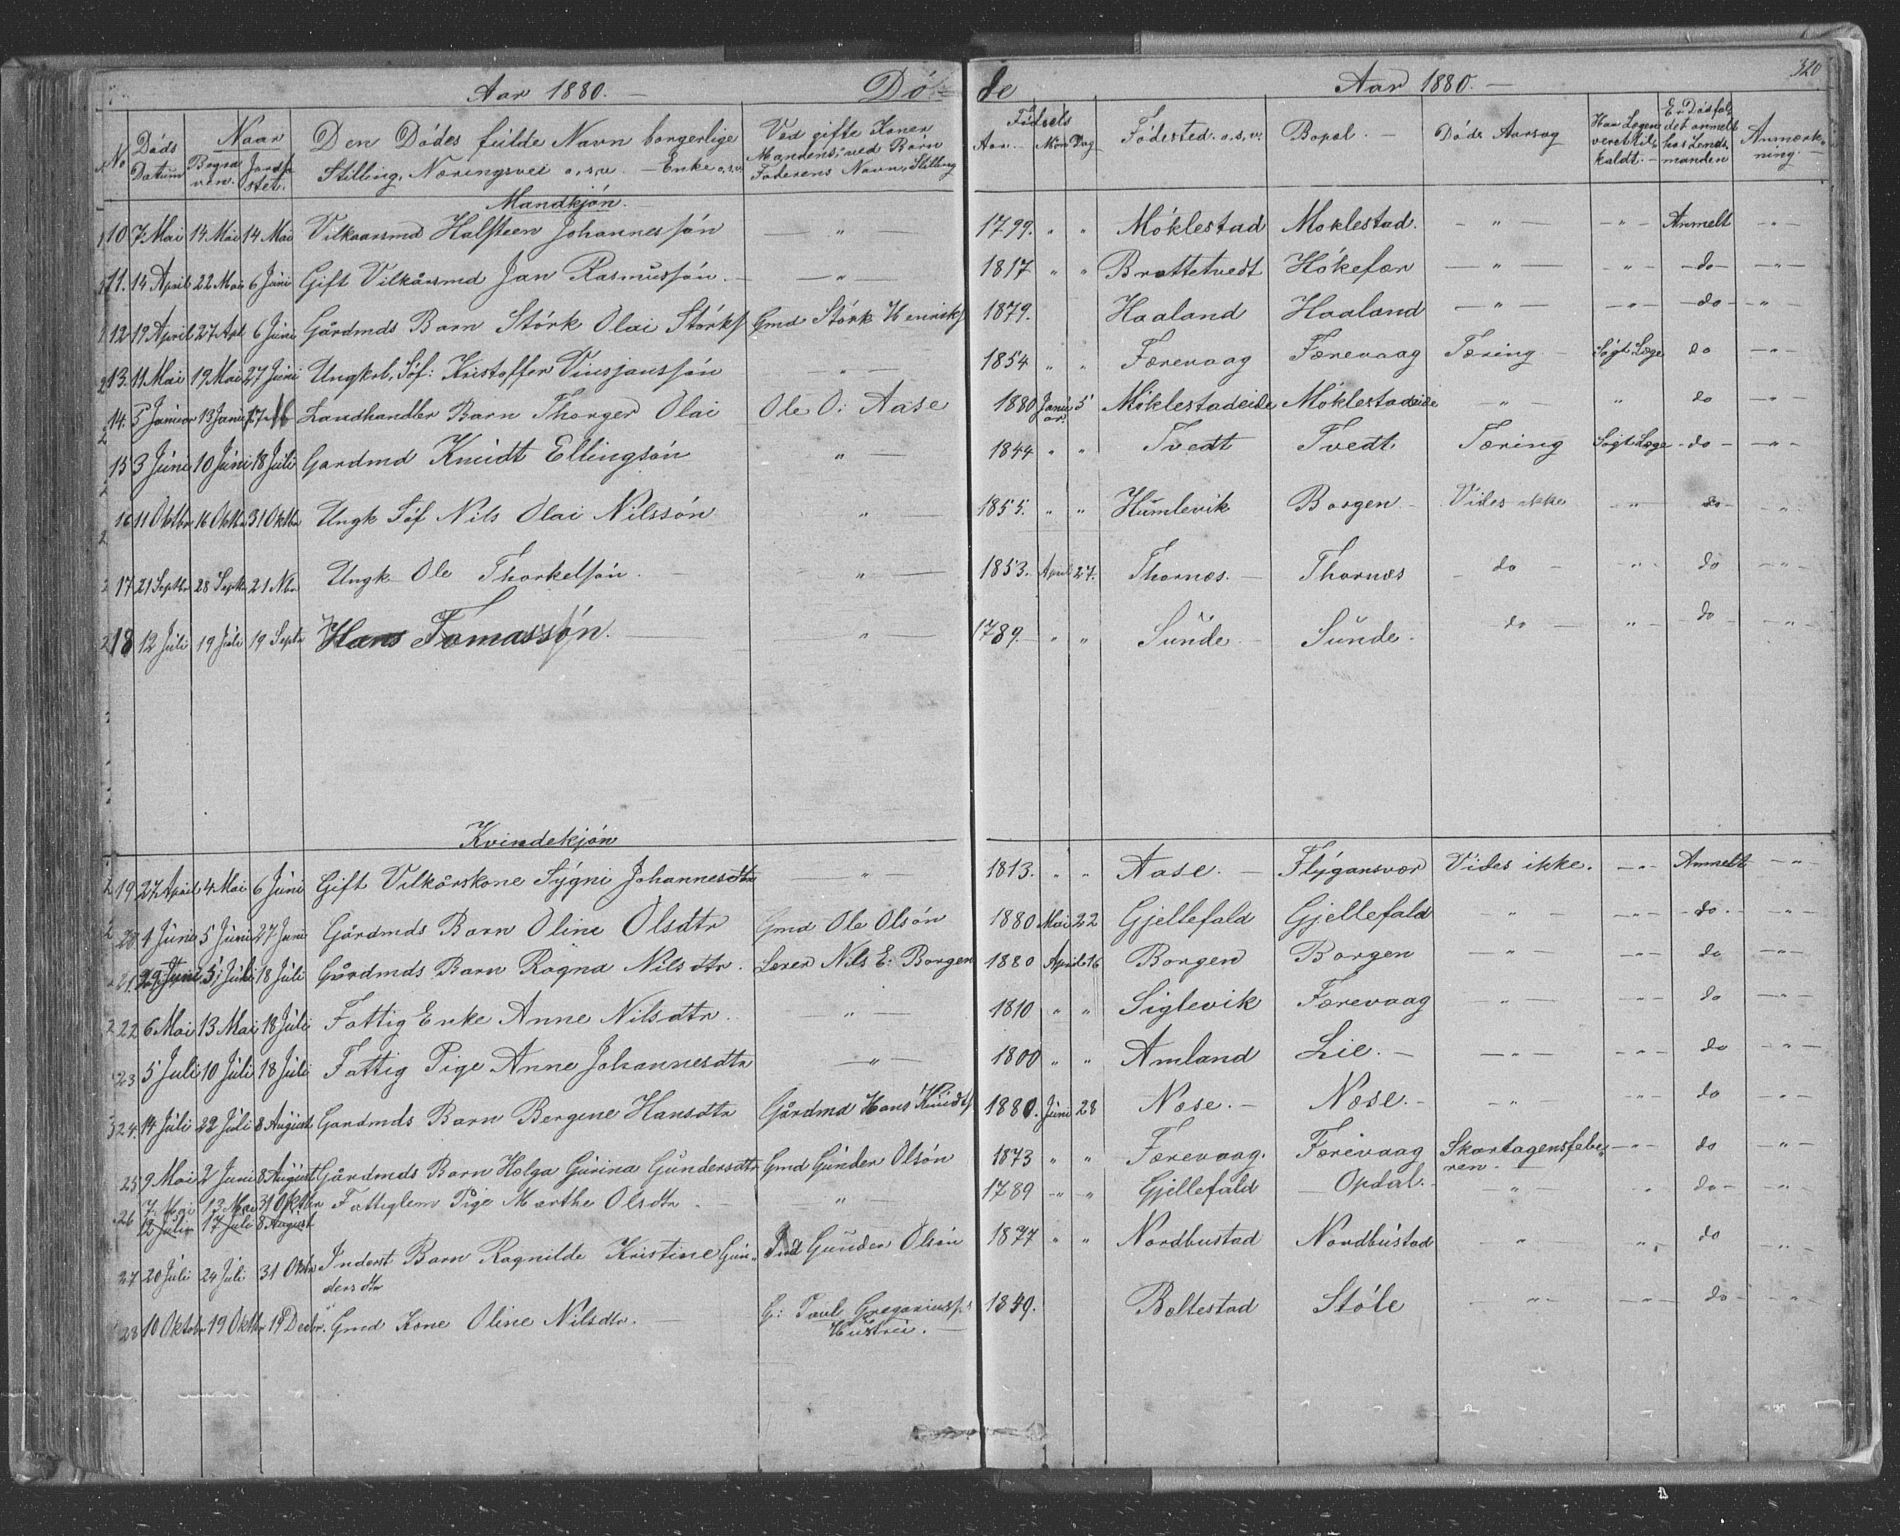 Aar 1880. — Dø de Aar 1880. — 320
No Døds Datum Naar Begra ven. Jordfæ stet. Den Dødes fulde Navn borgerlige Stilling, Næringsvei o.s.v. — Enke o.s.v. Ved gifte Koner Mandens; ved Børn Faderens Navn, Stilling Fødsels Aar Mdn Dag Fødested o.s.v. Bopæl. — Døds Aarsag Har Lægen været til kaldt. Er Dødsfal det anmelt hos Lends manden Anmærk ning.
Mandkjøn.
10 7 Mai 14 Mai 14 Mai Vilkaarsmd Halsteen Johannessøn — " — 1799. " " Møklestad Møklestad. — " — — " — Anmelt — " —
11. 14 April 22 Mai 6 Juni Gift Vilkårsmd Jan Rasmussøn. — " — 1817 " " Brattetvedt Høkefær — " — — " — do — " —
12 19 April 27 Apl 6 Juni Gårdmds Barn Størk Olai Størks Gmd Størk Henriks 1879. Haaland Haaland — " — — " — do — " —
13. 11 Mai 19 Mai 27 Juni Ungkrl. Søf: Kristoffer Vinsjanssøn " — 1854 " " Færevaag Færevaag Tæring — Søgt Læge do — " —
14. 5 Januar 13 Janr Landhandler Barn Thorger Olai Ole O: Aase 1880 Janu ar 5 Møklestadeide Møklestadeide — " — " do — " —
15 3 Juni 10 Juni 18 Juli Gardmd Knudt Ellingsøn " — 1844 " " Tvedt Tvedt. Tæring Søgt Læge do — " —
16 11 Oktbr 16 Oktbr 31 Oktbr Ungk Søf Nils Olai Nilssøn " — 1855. " " Humlevik Borgen — Vides ikke — " — do — " —
17 21 Septbr 28 Septbr 21 Nbr Ungk Ole Thorkelsøn. " — 1853. April 27. Thornæs. — Thornæs — do — — " — do — " —
18 12 Juli 19 Juli 19 Septr Hans Tomassøn. — " 1789 — " " Sunde — Sunde — do — — " — do — " —
Kvindekjøn
19 27 April 4 Mai 6 Juni Gift Vilkårskone Sygni Johannesdtr — " — 1813. " " Aase. — Flygansvær Vides ikke. — " — Anmelt — " —
20 4 June 5 Juni 27 Juni Gårdmds Barn Oline Olsdtr Gmd Ole Olsøn 1880 Mai 22 Gjellefald Gjellefald — " — — " — do. — — " —
21. 29 Juni 5 Juli 18 Juli Gårdmds Barn Ragna Nilsdtr. Lærer Nils E: Borgen 1880 April 16 Borgen Borgen — " — — " — do — " —
22 6 Mai 13 Mai 18 Juli Fattig Enke Anne Nilsdtr. — " — 1810 " " Siglevik Færevaag — " — — " — do — " —
23 5 Juli 10 Juli 18 Juli Fattig Pige Anne Johannesdtr — " — 1800 " " Amland Lie. — — " — — " — do — " —
24. 14 Juli 22 Juli 8 August Gardmds Barn Bergine Hansdtr Gårdmd Hans Knudts 1880. Juni 28 Næse. — Næse. — — " — — " — do — " —
25 9 Mai 2 Juni 8 August Gårdmds Barn Helga Gurina Gundersdtr Gmd Gunder Olsøn 1873 " " Færevaag. Færevaag Skarlagensfebe ren. — — " — do — " —
26 7 Mai 13 Mai 31 Oktbr Fattiglem Pige Marthe Olsdtr — " — 1789 — " " Gjellefald — Opdal. — " — " do — — " —
12 Juli 17 Juli 8 August
27 20 Juli 24 Juli 31 Oktr Inderst Barn Ragnilde Kristine Gun dersdtr Ind Gunder Olsøn 1877 " " Nordbustad Nordbustad " " do — " —
28 10 Oktobr 19 Oktbr 19 Decbr. Gmd Kone Oline Nilsdtr. — G: Paul Gregoriuss: Hustru. — 1849. Bæltestad Støle — " — — " — do — — " —